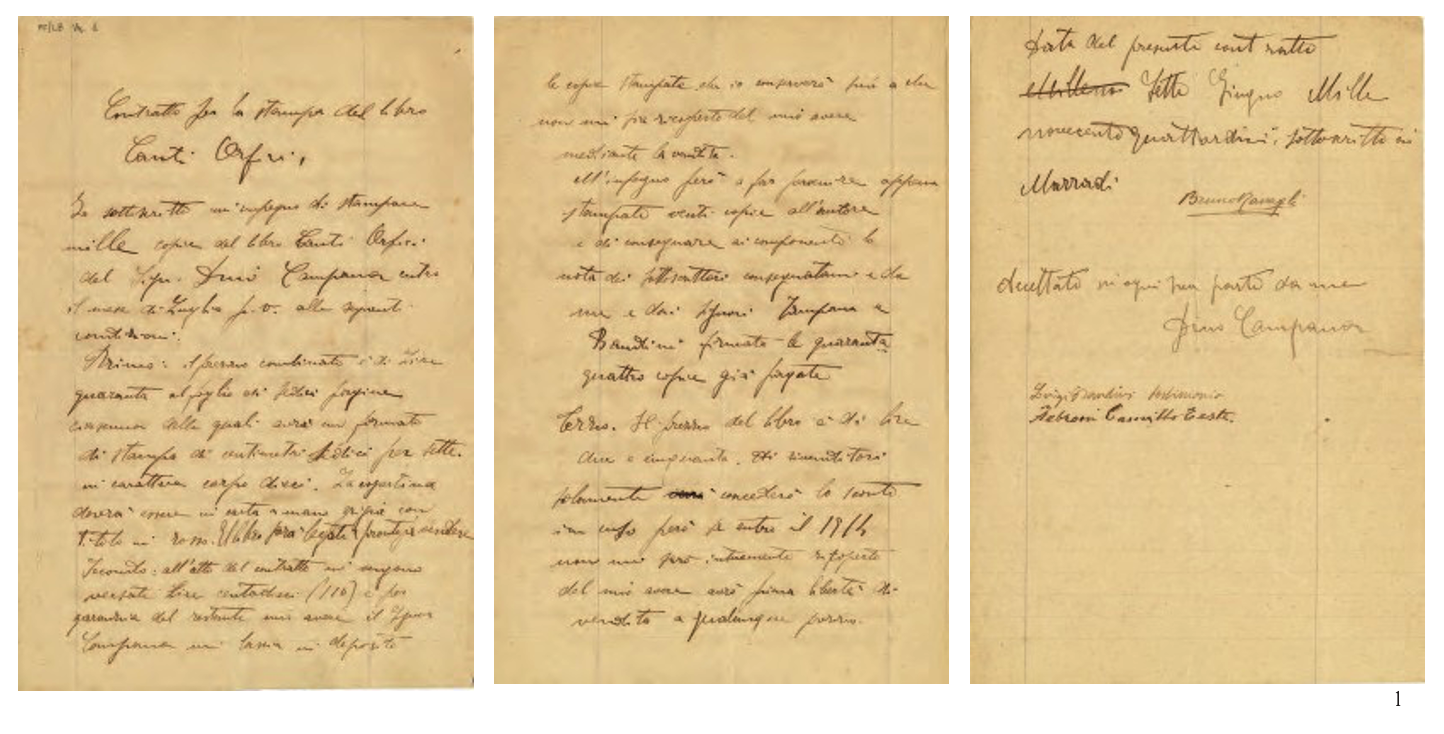 Contratto per la stampa del libro
Canti Orfici,
Io sottoscritto m'impegno di stampare
mille copie del libro Canti Orfici
del Sign. Dino Campana entro
il mese di Luglio p.v. alle seguenti
condizioni:
Primo: il prezzo combinato è di Lire
quaranta al foglio di sedici pagine
ciascuna delle quali avrà un formato
di stampa di centimetri sedici per sette.
in carattere corpo dieci. La copertina
dovrà essere in carta a mano grigia con
titolo in rosso. Il libro sarà legato e pronto per vendere
Secondo: all'atto del contratto mi vengono
versate Lire centodieci (110) e per
garanzia del restante mio avere il Signor
Campana mi lascia in deposito
le copie stampate che io conserverò fino a che
non mi sia ricoperto del mio avere
mediante la vendita.
M'impegno però a far pervenire appena
stampate venti copie all'autore
e di consegnare ai componenti la
nota dei sottoscrittori consegnatami e da
me e dai signori Campana e
Bandini firmata le quaranta
quattro copie già pagate
Terzo. Il prezzo del libro è di lire
due e cinquanta. Ai rivenditori
solamente concederò lo sconto
però se entro il 1914
non mi sarò interamente ricoperto
del mio avere avrò piena libertà di
vendita a qualunque prezzo.
Data del presente contratto
Sette Giugno Mille
novecento quattordici, sottoscritto in
Marradi
Bruno Ravagli
Accettato in ogni sua parte da me
Dino Campana
Luigi Bandini testimonio
Febroni Camillo Teste.
1